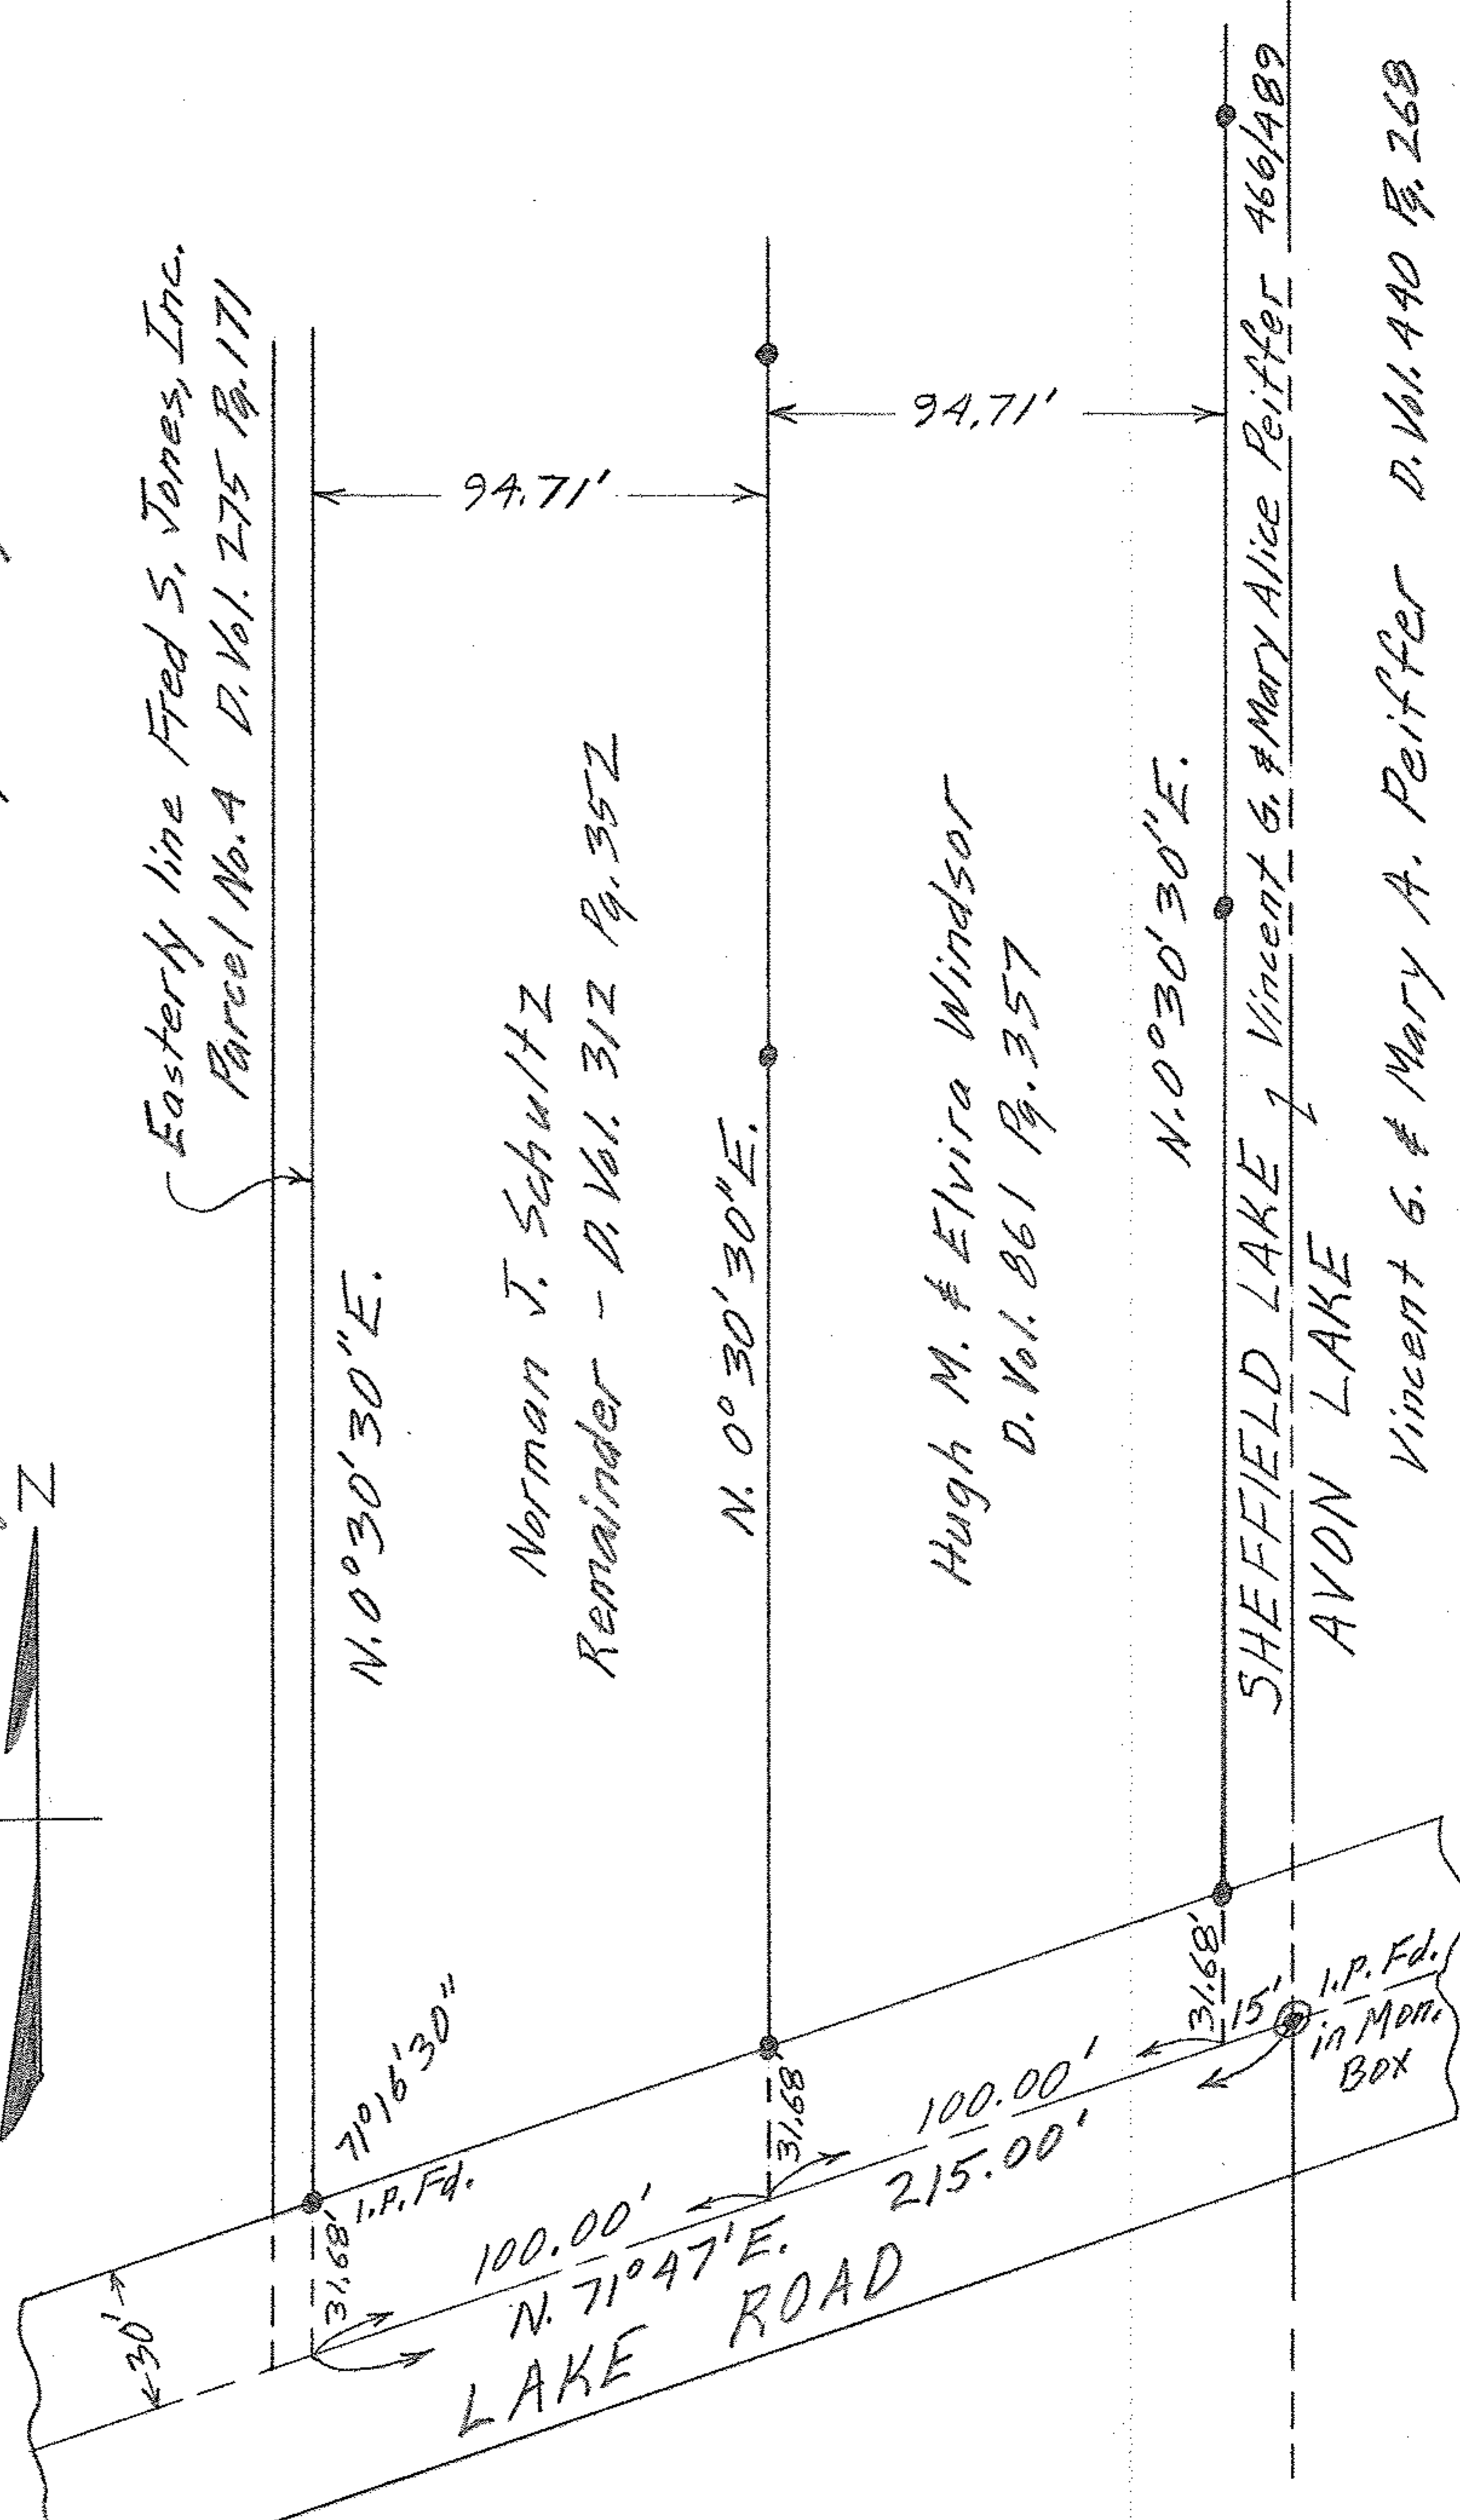 Z
Easterly line Fred S. Jones, Inc.
Parcel No. 4 D. Vol. 275 Pg. 171
N. 0° 30' 30" E.
94.71'
Norman J. Schultz
Remainder - D. Vol. 312 Pg. 352
N. 0° 30' 30" E.
94.71'
Hugh M. & Elvira Windsor
D. Vol. 861 Pg. 357
N. 0° 30' 30" E.
SHEFFIELD LAKE
Vincent G. & Mary Alice Peiffer 466/489
AVON LAKE
Vincent G. & Mary A. Peiffer D. Vol. 440 Pg. 268
30'
31.68'
I.P. Fd.
71° 16' 30"
100.00'
N. 71° 47' E.
LAKE ROAD
31.68'
100.00'
215.00'
31.68'
15'
I.P. Fd.
in Mon.
Box